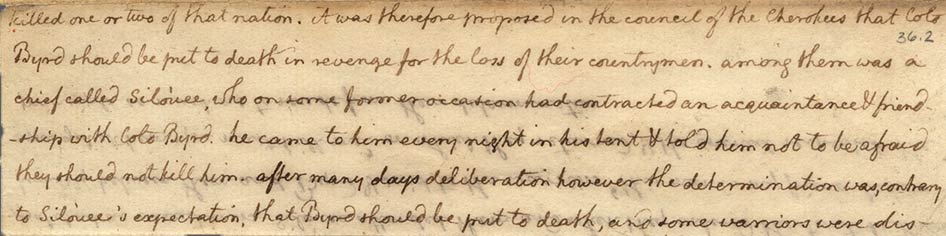 killed one or two of that nation. it was therefore proposed in the council of the Cherokees that Colo
36.2
Byrd should be put to death in revenge for the loss of their countrymen. among them was a
chief called Silòuee, who on some former occasion had contracted an acquaintance & friend-
-ship with Colo Byrd. he came to him every night in his tent & told him not to be afraid
they should not kill him. after many days deliberation however the determination was, contrary
to Silòuee's expectation, that Byrd should be put to death, and some warriors were dis-